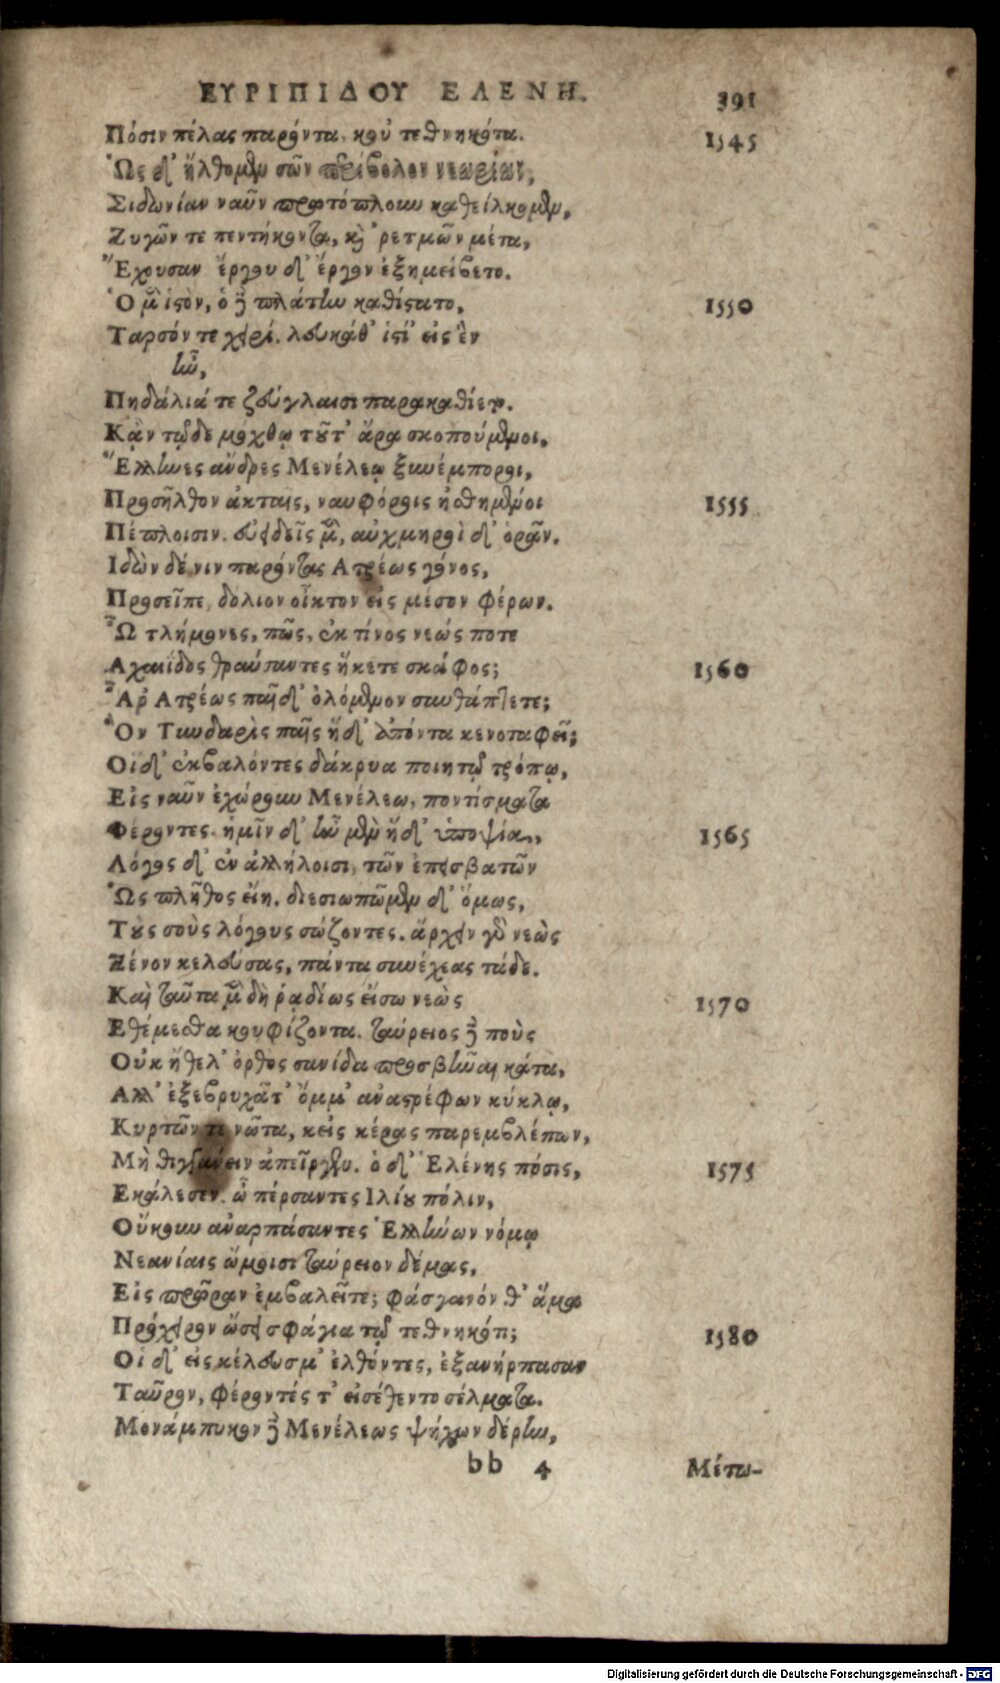 ΕΥΡΙΠΙΔΟΥ ΕΛΕΝΗ. 391
Πόσιν πέλας παρόντα, κοὐ τεθνηκότα. 1545
Ὡς δ' ἤλθομεν σῶν περίβολον νεωρίων,
Σιδωνίαν ναῦν πρωτόπλουν καθείλκομεν,
Ζυγῶν τε πεντήκοντα, καὶ 'ρετμῶν μέτα,
Ἔχουσαν ἔργου δ' ἔργον ἐξημείβετο.
Ὁ μὲν ἱστὸν, ὁ δὲ πλάτην καθίστατο, 1550
Ταρσόν τε χειρί. λευκάθ' ἱστί' εἰς ἓν
ἦν,
Πηδάλιά τε ζεύγλαισι παρακαθίετο.
Κᾂν τῷδε μόχθῳ τοῦτ' ἄρα σκοπούμενοι,
Ἕλληνες ἄνδρες Μενέλεῳ ξυνέμποροι,
Προσῆλθον ἀκταῖς, ναυφόροις ἠσθημένοι 1555
Πέπλοισιν. εὐειδεῖς μὲν, αὐχμηροὶ δ' ὁρᾶν.
Ιδὼν δέ νιν παρόντας Ατρέως γόνος,
Προσεῖπε, δόλιον οἶκτον εἰς μέσον φέρων.
Ὦ τλήμονες, πῶς, ἐκ τίνος νεώς ποτε
Αχαιίδος θραύσαντες ἥκετε σκάφος; 1560
Ἆρ' Ατρέως παῖδ' ὀλόμενον συνθάπτετε;
Ὃν Τυνδαρὶς παῖς ἥδ' ἀπόντα κενοταφεῖ;
Οἱ δ' ἐκβαλόντες δάκρυα ποιητῷ τρόπῳ,
Εἰς ναῦν ἐχώρουν Μενέλεω, ποντίσματα
Φέροντες. ἡμῖν δ' ἦν μὲν ἥδ' ὑποψία, 1565
Λόγος δ' ἐν ἀλλήλοισι, τῶν ἐπεσβατῶν
Ὡς πλῆθος εἴη. διεσιωπῶμεν δ' ὅμως,
Τοὺς σοὺς λόγους σώζοντες. ἄρχειν γὰρ νεὼς
Ξένον κελεύσας, πάντα συνέχεας τάδε.
Καὶ ταῦτα μὲν δὴ ῥαδίως εἴσω νεὼς 1570
Εθέμεσθα κουφίζοντα. ταύρειος δὲ ποὺς
Οὐκ ἤθελ' ὀρθὸς σανίδα προσβῆναι κάτα,
Αλλ' ἐξεβρυχᾶτ' ὄμμ' ἀναστρέφων κύκλῳ,
Κυρτῶν τε νῶτα, κεἰς κέρας παρεμβλέπων,
Μὴ θιγγάνειν ἀπεῖργεν. ὁ δ' Ἑλένης πόσις, 1575
Εκάλεσεν. ὦ πέρσαντες Ιλίου πόλιν,
Οὔκουν ἀναρπάσαντες Ἑλλήνων νόμῳ
Νεανίαις ὤμοισι ταύρειον δέμας,
Εἰς πρῷραν ἐμβαλεῖτε; φάσγανόν θ' ἅμα
Πρόχειρον ὤσει σφάγια τῷ τεθνηκότι; 1580
Οἱ δ' εἰς κέλευσμ' ἐλθόντες, ἐξανήρπασαν
Ταῦρον, φέροντές τ' εἰσέθεντο σέλματα.
Μονάμπυκον δὲ Μενέλεως ψήχων δέρην,
bb 4 Μέτω-
Digitalisierung gefördert durch die Deutsche Forschungsgemeinschaft - DFG